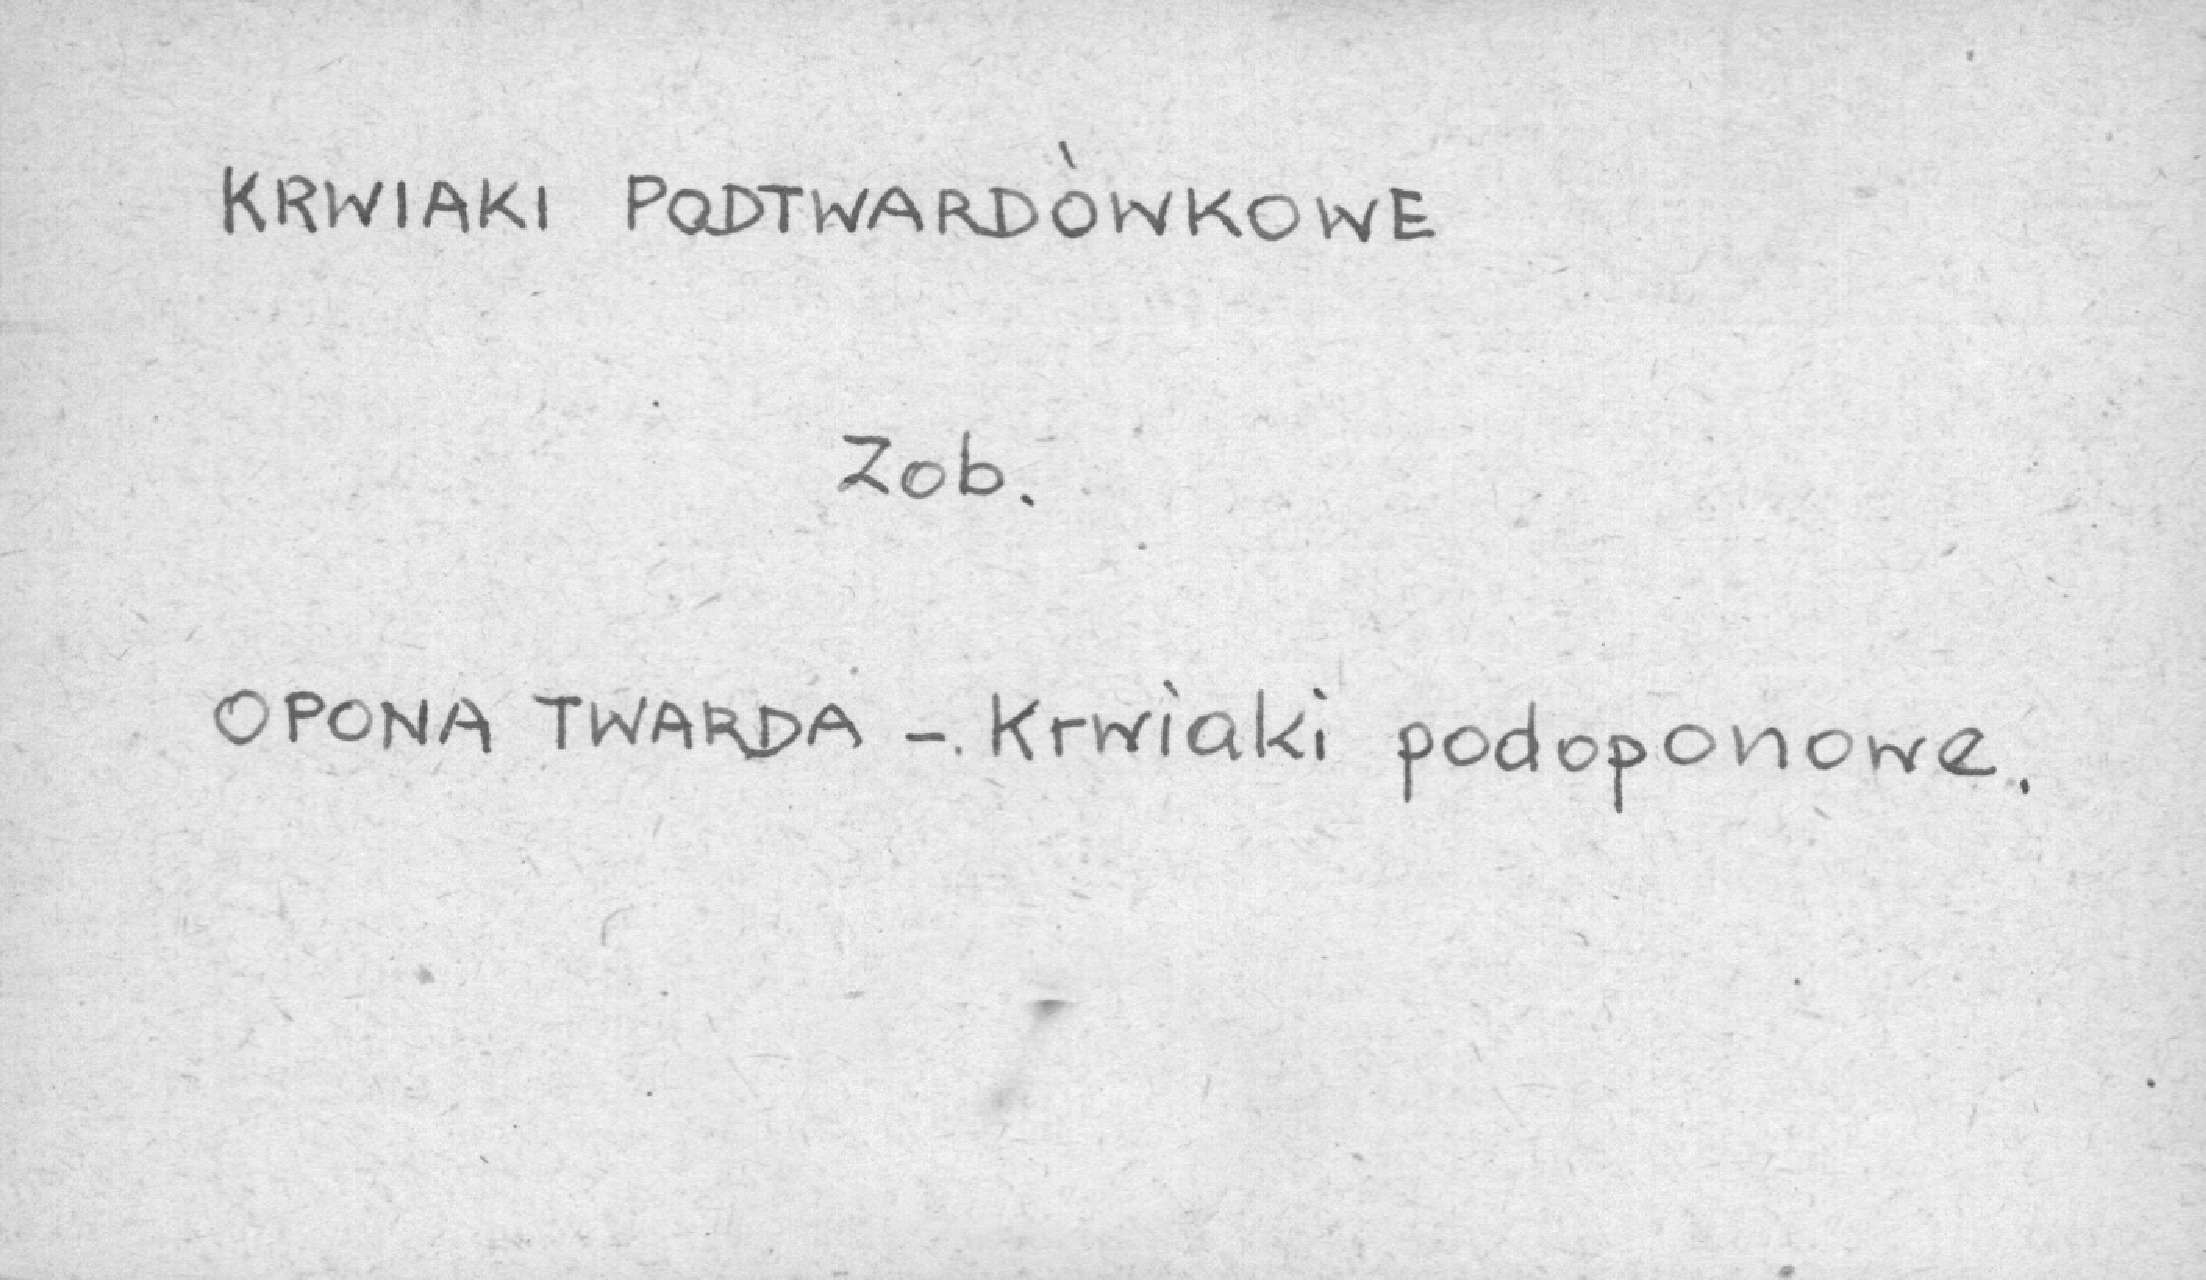 KRWIAKI PODTWARDÓWKOWE
Zob.
OPONA TWARDA - Krwiaki podoponowe.